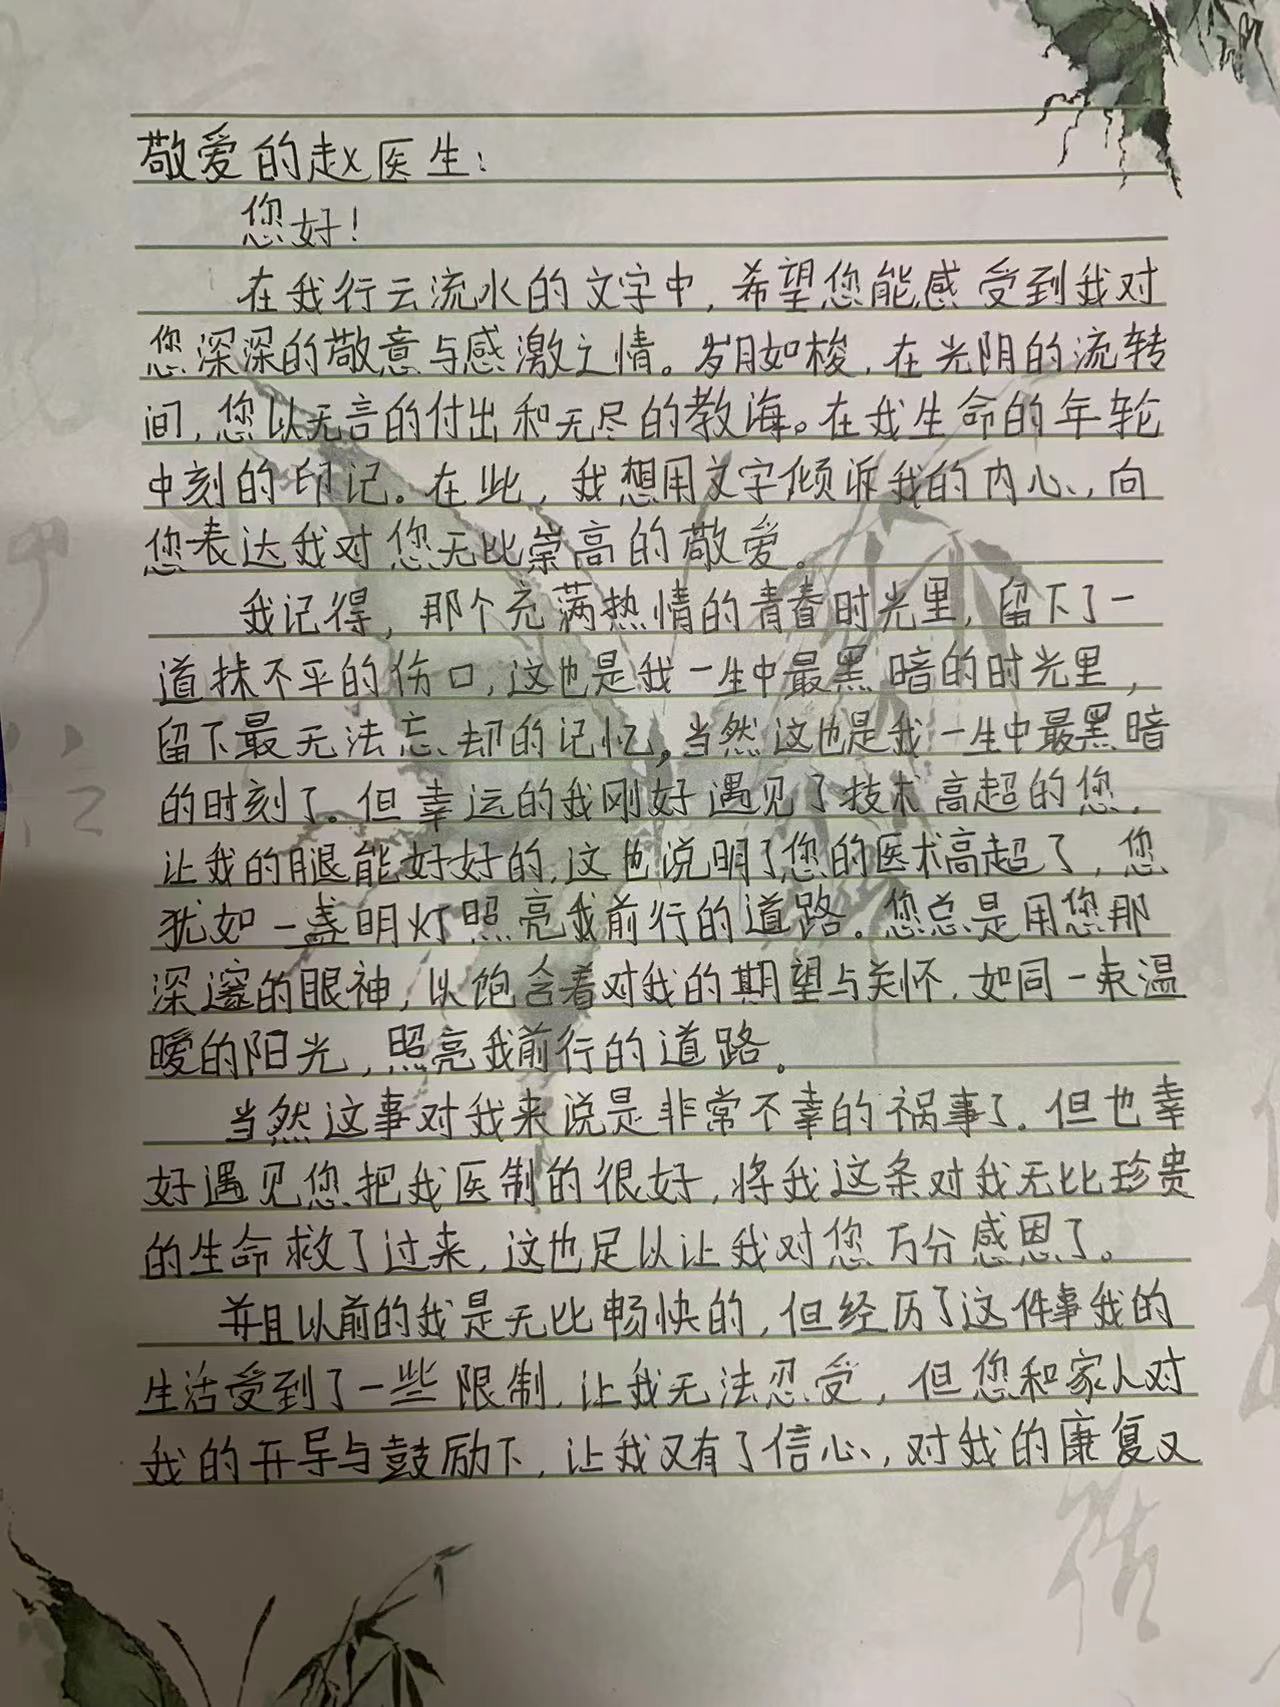 敬爱的赵医生:
您好!
在我行云流水的文字中,希望您能感受到我对
您深深的敬意与感激之情。岁月如梭,在光阴的流转
间,您以无言的付出和无尽的教海。在我生命的年轮
中刻的印记。在此,我想用文字倾诉我的内心,向
您表达我对您无比崇高的敬爱。
我记得,那个充满热情的青春时光里,留下了一
道抹不平的伤口,这也是我一生中最黑暗的时光里,
留下最无法忘却的记忆,当然这也是我一生中最黑暗
的时刻了。但幸运的我刚好遇见了技术高超的您,
让我的腿能好好的,这也说明了您的医术高超了,您
犹如一盏明灯照亮我前行的道路。您总是用您那
深邃的眼神,以饱含着对我的期望与关怀,如同一束温
暖的阳光,照亮我前行的道路。
当然这事对我来说是非常不幸的祸事了。但也幸
好遇见您把我医制的很好,将我这条对我无比珍贵
的生命救了过来,这也足以让我对您万分感恩了。
并且以前的我是无比畅快的,但经历了这件事我的
生活受到了一些限制,让我无法忍受,但您和家人对
我的开导与鼓励下,让我又有了信心,对我的康复又